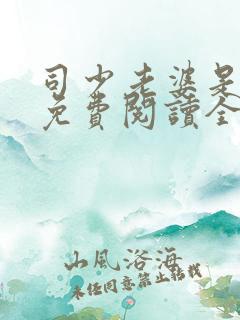 司少老婆是
免費閱讀全
山風浴海
未经同意禁止转载